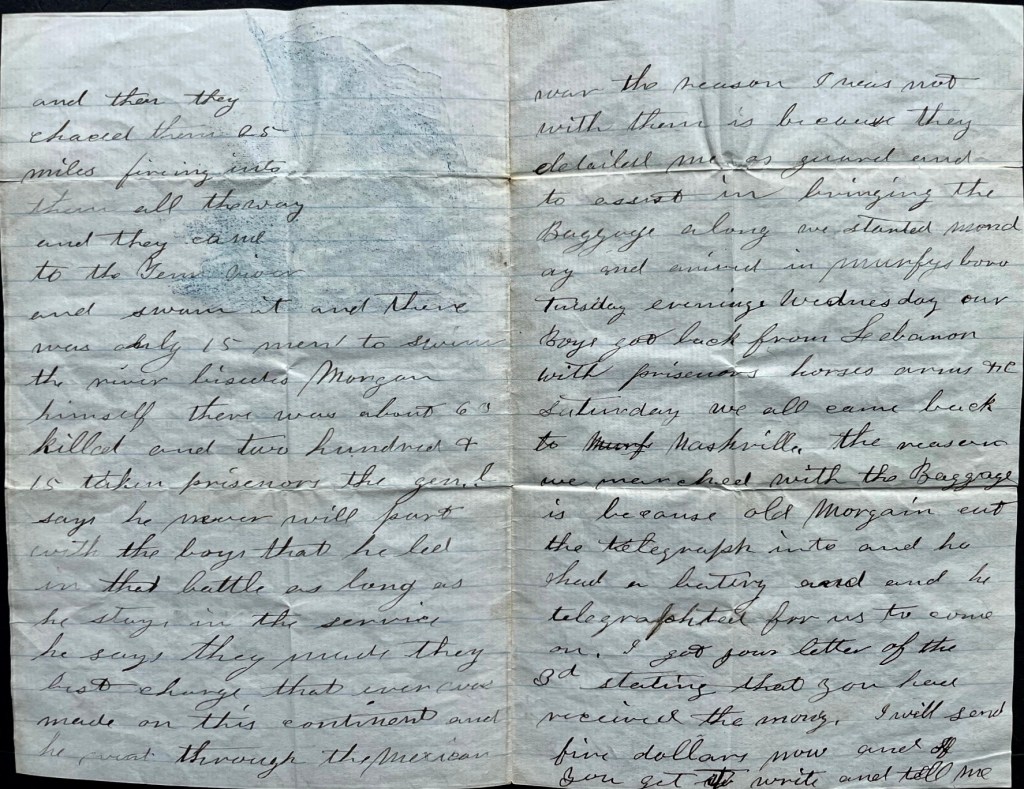 and then they
chaced them 25
miles firing into
them all the way
and they came
to the Tenn river
and swam it and there
was only 15 men to swim
the river besides Morgan
himself there was about 60
killed and two hundred &
15 taken prisenors the gen.l
says he never will part
with the boys that he led
in that battle as long as
he stays in the service
he says they made they
best charge that ever was
made on this continent and
he was through the Mexican
war the reason I was not
with them is because they
detailed me as guard and
to assist in bringing the
Baggage along we started mond
ay and arived in murfysboro
Tuesday evening Wednesday our
Boys got back from Lebanon
with prisenors horses arms &c
Saturday we all came back
to Murf Nashville. the reason
we marched with the Baggage
is because old Morgain cut
the telegraph into and he
had a batiry and he
telegraphted for us to come
on. I got your letter of the
3d stating that you had
received the mony. I will send
five dollars now and if
you get it write and tell me